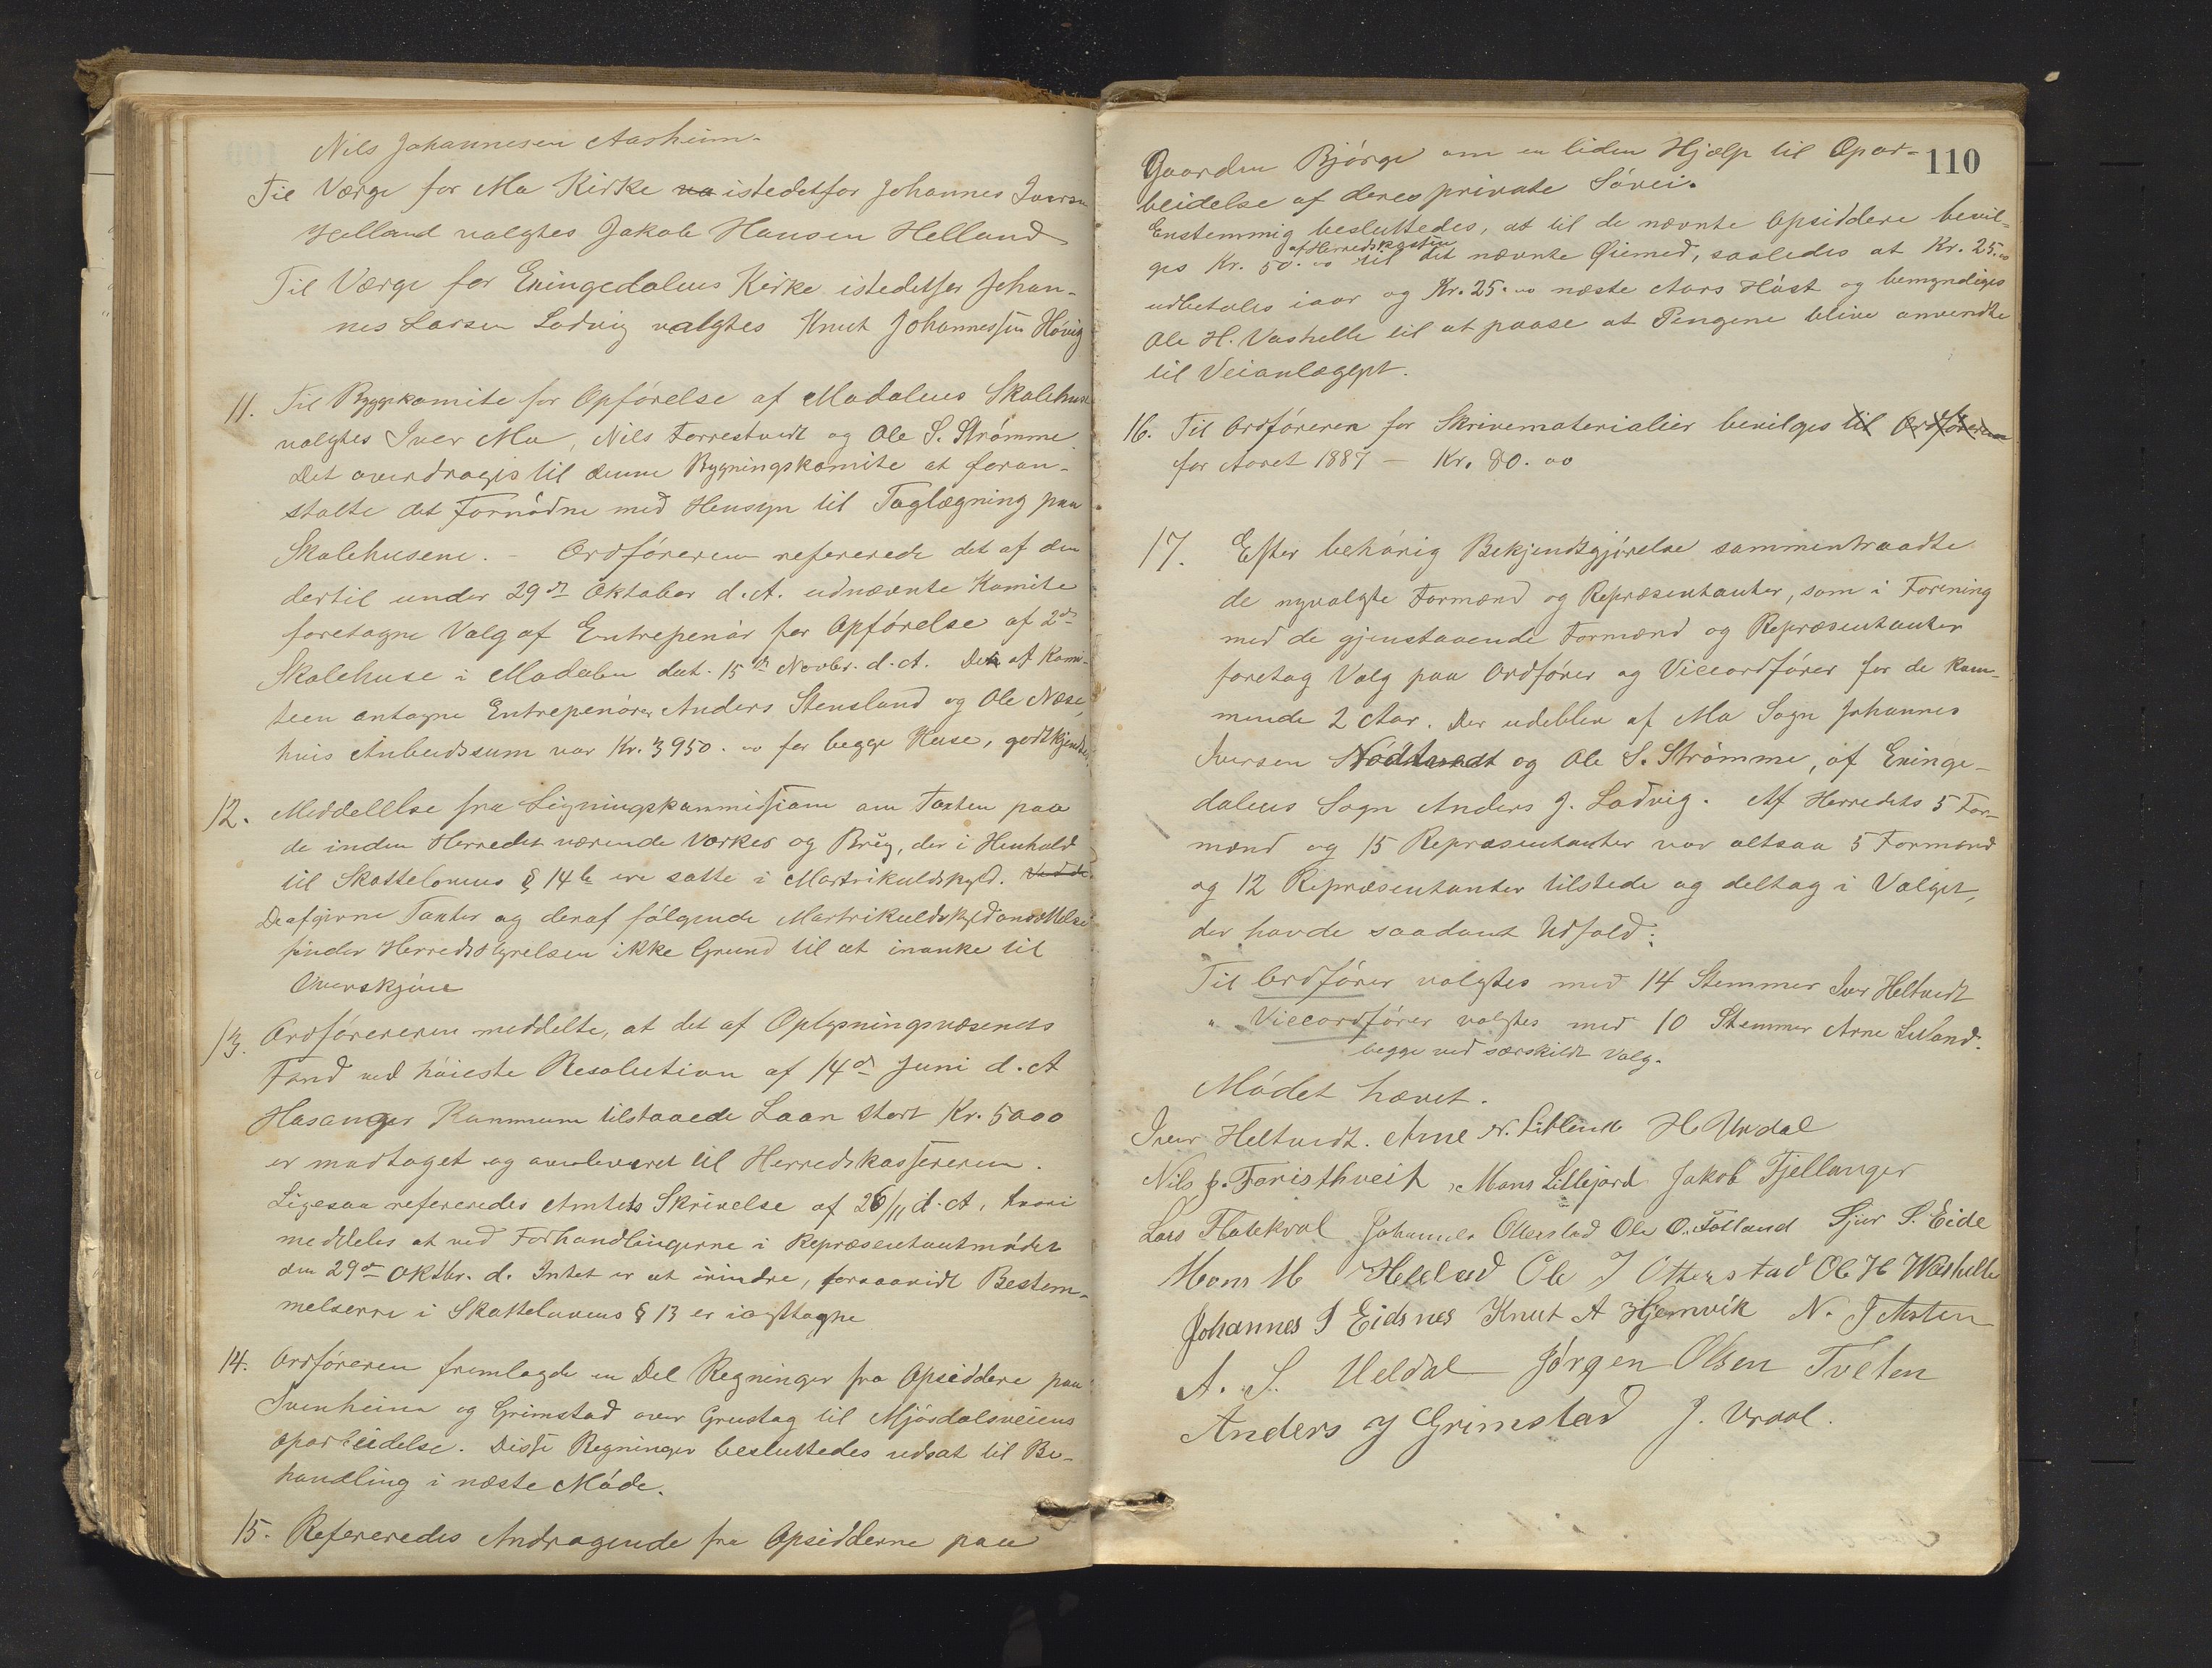 Nils Johannesen Aasheim.
Til Værge for Mo Kirke va istedetfor Johannes Iversen
Helland valgtes Jakob Hansen Helland
Til Værge for Eningedalens Kirke istedetfor Johan-
nes Larsen Lodvig valgtes Knut Johannessen Hovig
11. Til Byggekomite for Opførelse af Modalens Skolehuse
valgtes Iver Mo, Nils Farrestvedt og Ole S. Strømme.
Det overdroges til denne Bygningskomite at foran-
stalte det Fornødne med Hensyn til Taglægning paa
Skolehusene. - Ordføreren refererede det af den
dertil under 29de Oktober d. A. udnævnte Komite
foretagne Valg af Entrepenør for Opførelse af 2de
Skolehuse i Modalen dat. 15de Novbr. d. A. De af Komi-
teen antagne Entrepenører Anders Stensland og Ole Næse,
hvis Anbudssum var Kr. 3950.00 for begge Huse, godtkjendtes.
12. Meddelelse fra Ligningskommissionen om Taxten paa
de inden Herredet værende Værker og Brug, der i Henhold
til Skattelovens § 14 b ere satte i Martrikulskyld. Ved de
De afgivne Taxter og deraf følgende Martrikulskyldansættelse
finder Herredsstyrelsen ikke Grund til at inanke til
Overskjøn
13. Ordføreren meddelte, at det af Oplysningsvæsenets
Fond ved høieste Resolution af 14de Juni d. A
Hosanger Kommune tilstaaede Laan stort Kr. 5000
er modtaget og overleveret til Herredskassereren.
Ligesaa refereredes Amtets Skrivelse af 26/11 d. A, hvori
meddeles at ved Forhandlingerne i Repræsentantmødet
den 29de Oktbr. d. Intet er at erindre, forsaavidt Bestem-
melserne i Skattelovens § 13 er iagttagne
14. Ordføreren fremlagde en Del Regninger fra Opsiddere paa
Ivenheim og Grimstad over Grustag til Mjøsdalsveiens
oparbeidelse. Disse Regninger besluttedes udsat til Be-
handling i næste Møde.
15. Refereredes Andragende fra Opsidderne paa
110
Gaarden Bjørge om en liden Hjælp til Opar-
beidelse af deres private Søvei.
Enstemmig besluttedes, at til de nævnte Opsiddere bevil-
af Herredskassen
ges Kr. 50.00 til det nævnte Øiemed, saaledes at Kr. 25.00
udbetales iaar og Kr. 25.00 næste Aars Høst og bemyndiges
Ole H. Vashelle til at paase at Pengene blive anvendte
til Veianlægget.
16. Til Ordføreren for Skrivematerialier bevilges til Ordføreren
for Aaret 1887 - Kr. 80.00
17. Efter behørig Bekjendtgjørelse sammentraadte
de nyvalgte Formænd og Repræsentanter, som i Forening
med de gjenstaaende Formænd og Repræsentanter
foretog Valg paa Ordfører og Viceordfører for de kom-
mende 2 Aar. Der udeblev af Mo Sogn Johannes
Iversen Nødtvedt og Ole S. Strømme, af Eninge-
dalens Sogn Anders J. Lodvig. Af Herredets 5 For-
mænd og 15 Repræsentanter var altsaa 5 Formænd
og 12 Repræsentanter tilstede og deltog i Valget,
der havde saadant Udfald:
Til Ordfører valgtes med 14 Stemmer Iver Heltvedt
" Viceordfører valgtes med 10 Stemmer Arne Lisland.
begge ved særskildt Valg.
Mødet hævet.
Iver Heltvedt. Arne N. H Urdal
Nils J. Foristhveit, Mons Littlejord Jakob Fjellanger
Lars Flatekval Johannes Otterstad Ole O. Fotland Sjur S. Eide
Mons M Helland Ole J Otterstad Ole H Washelle
Johannes I Eidsnes Knut A Hjemvik N. J Aasten
A. S. Ueldal Jørgen Olsen Tveten
Anders J Grimstad J. Urdal.